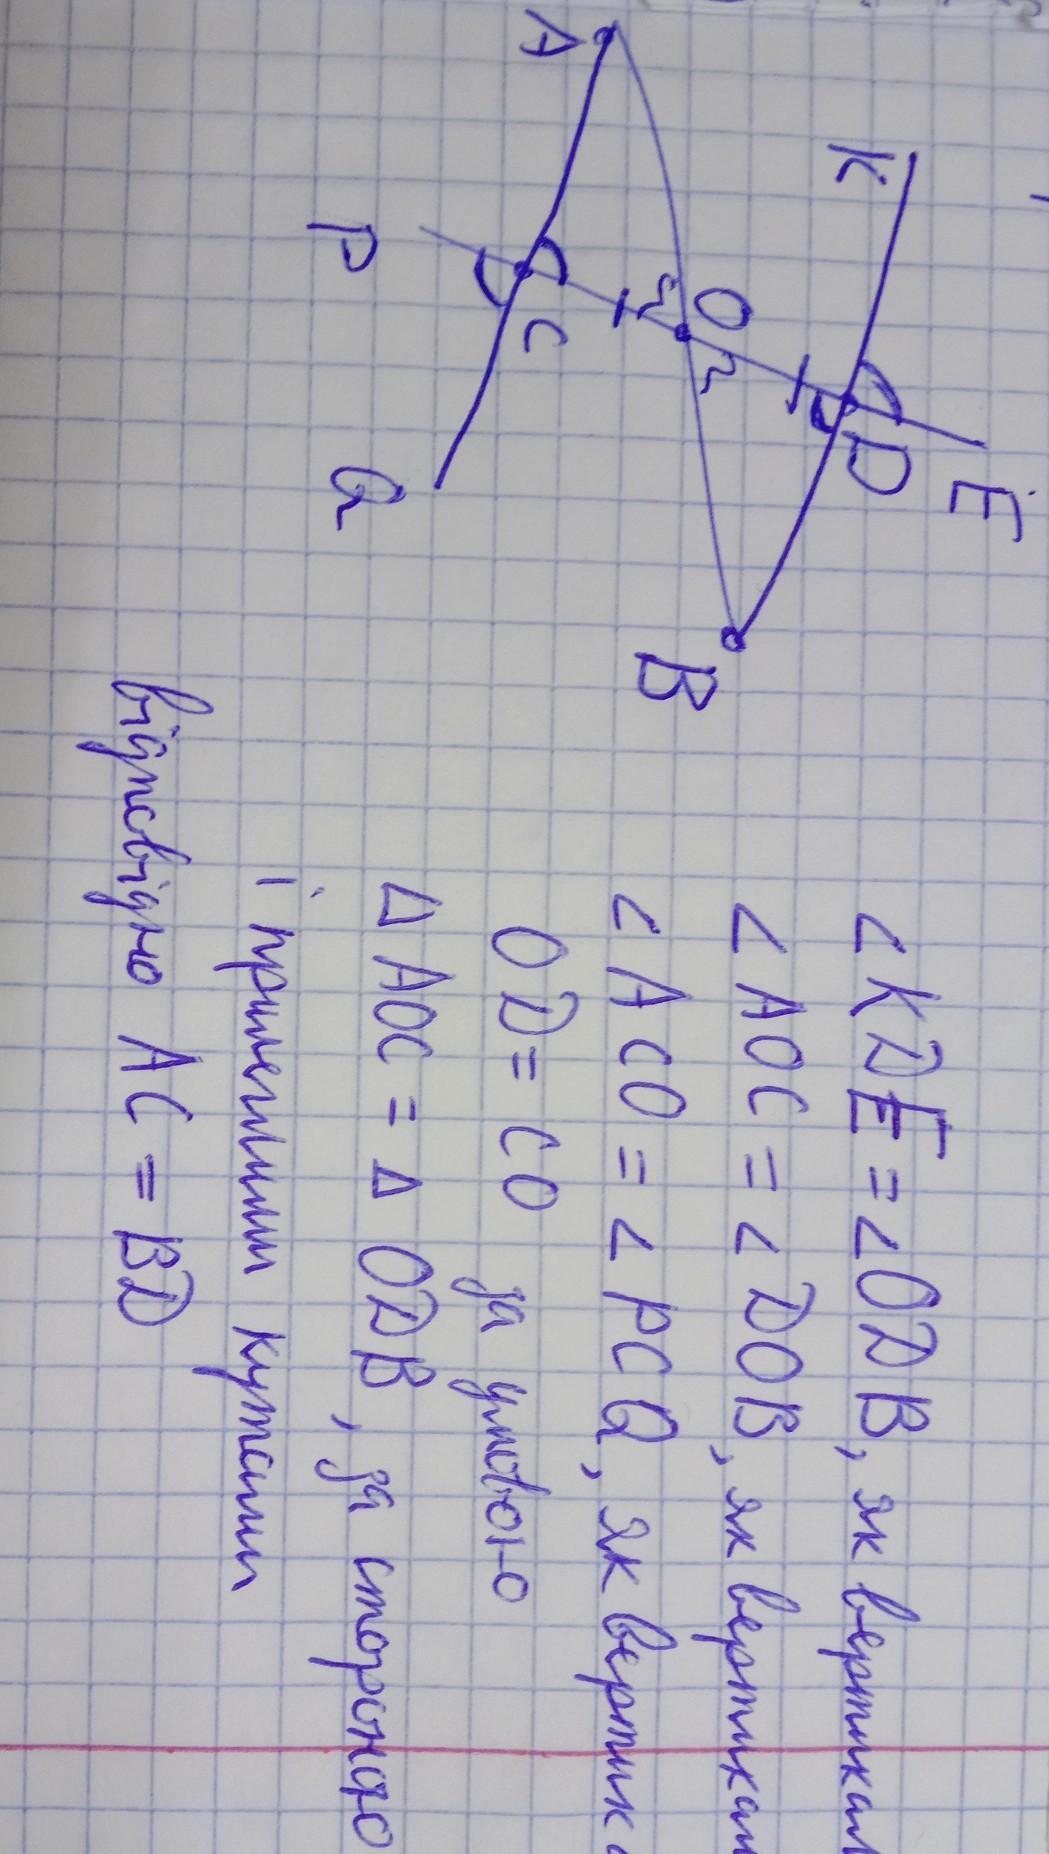 K
E
D
O
B
A
C
P
Q
∠KDE = ∠ODB, як вертикал
∠AOC = ∠DOB, як вертикал
∠ACO = ∠PCQ, як вертик
OD = CO за умовою
Δ AOC = Δ ODB, за стороною
і прилеглими кутами
відповідно AC = BD